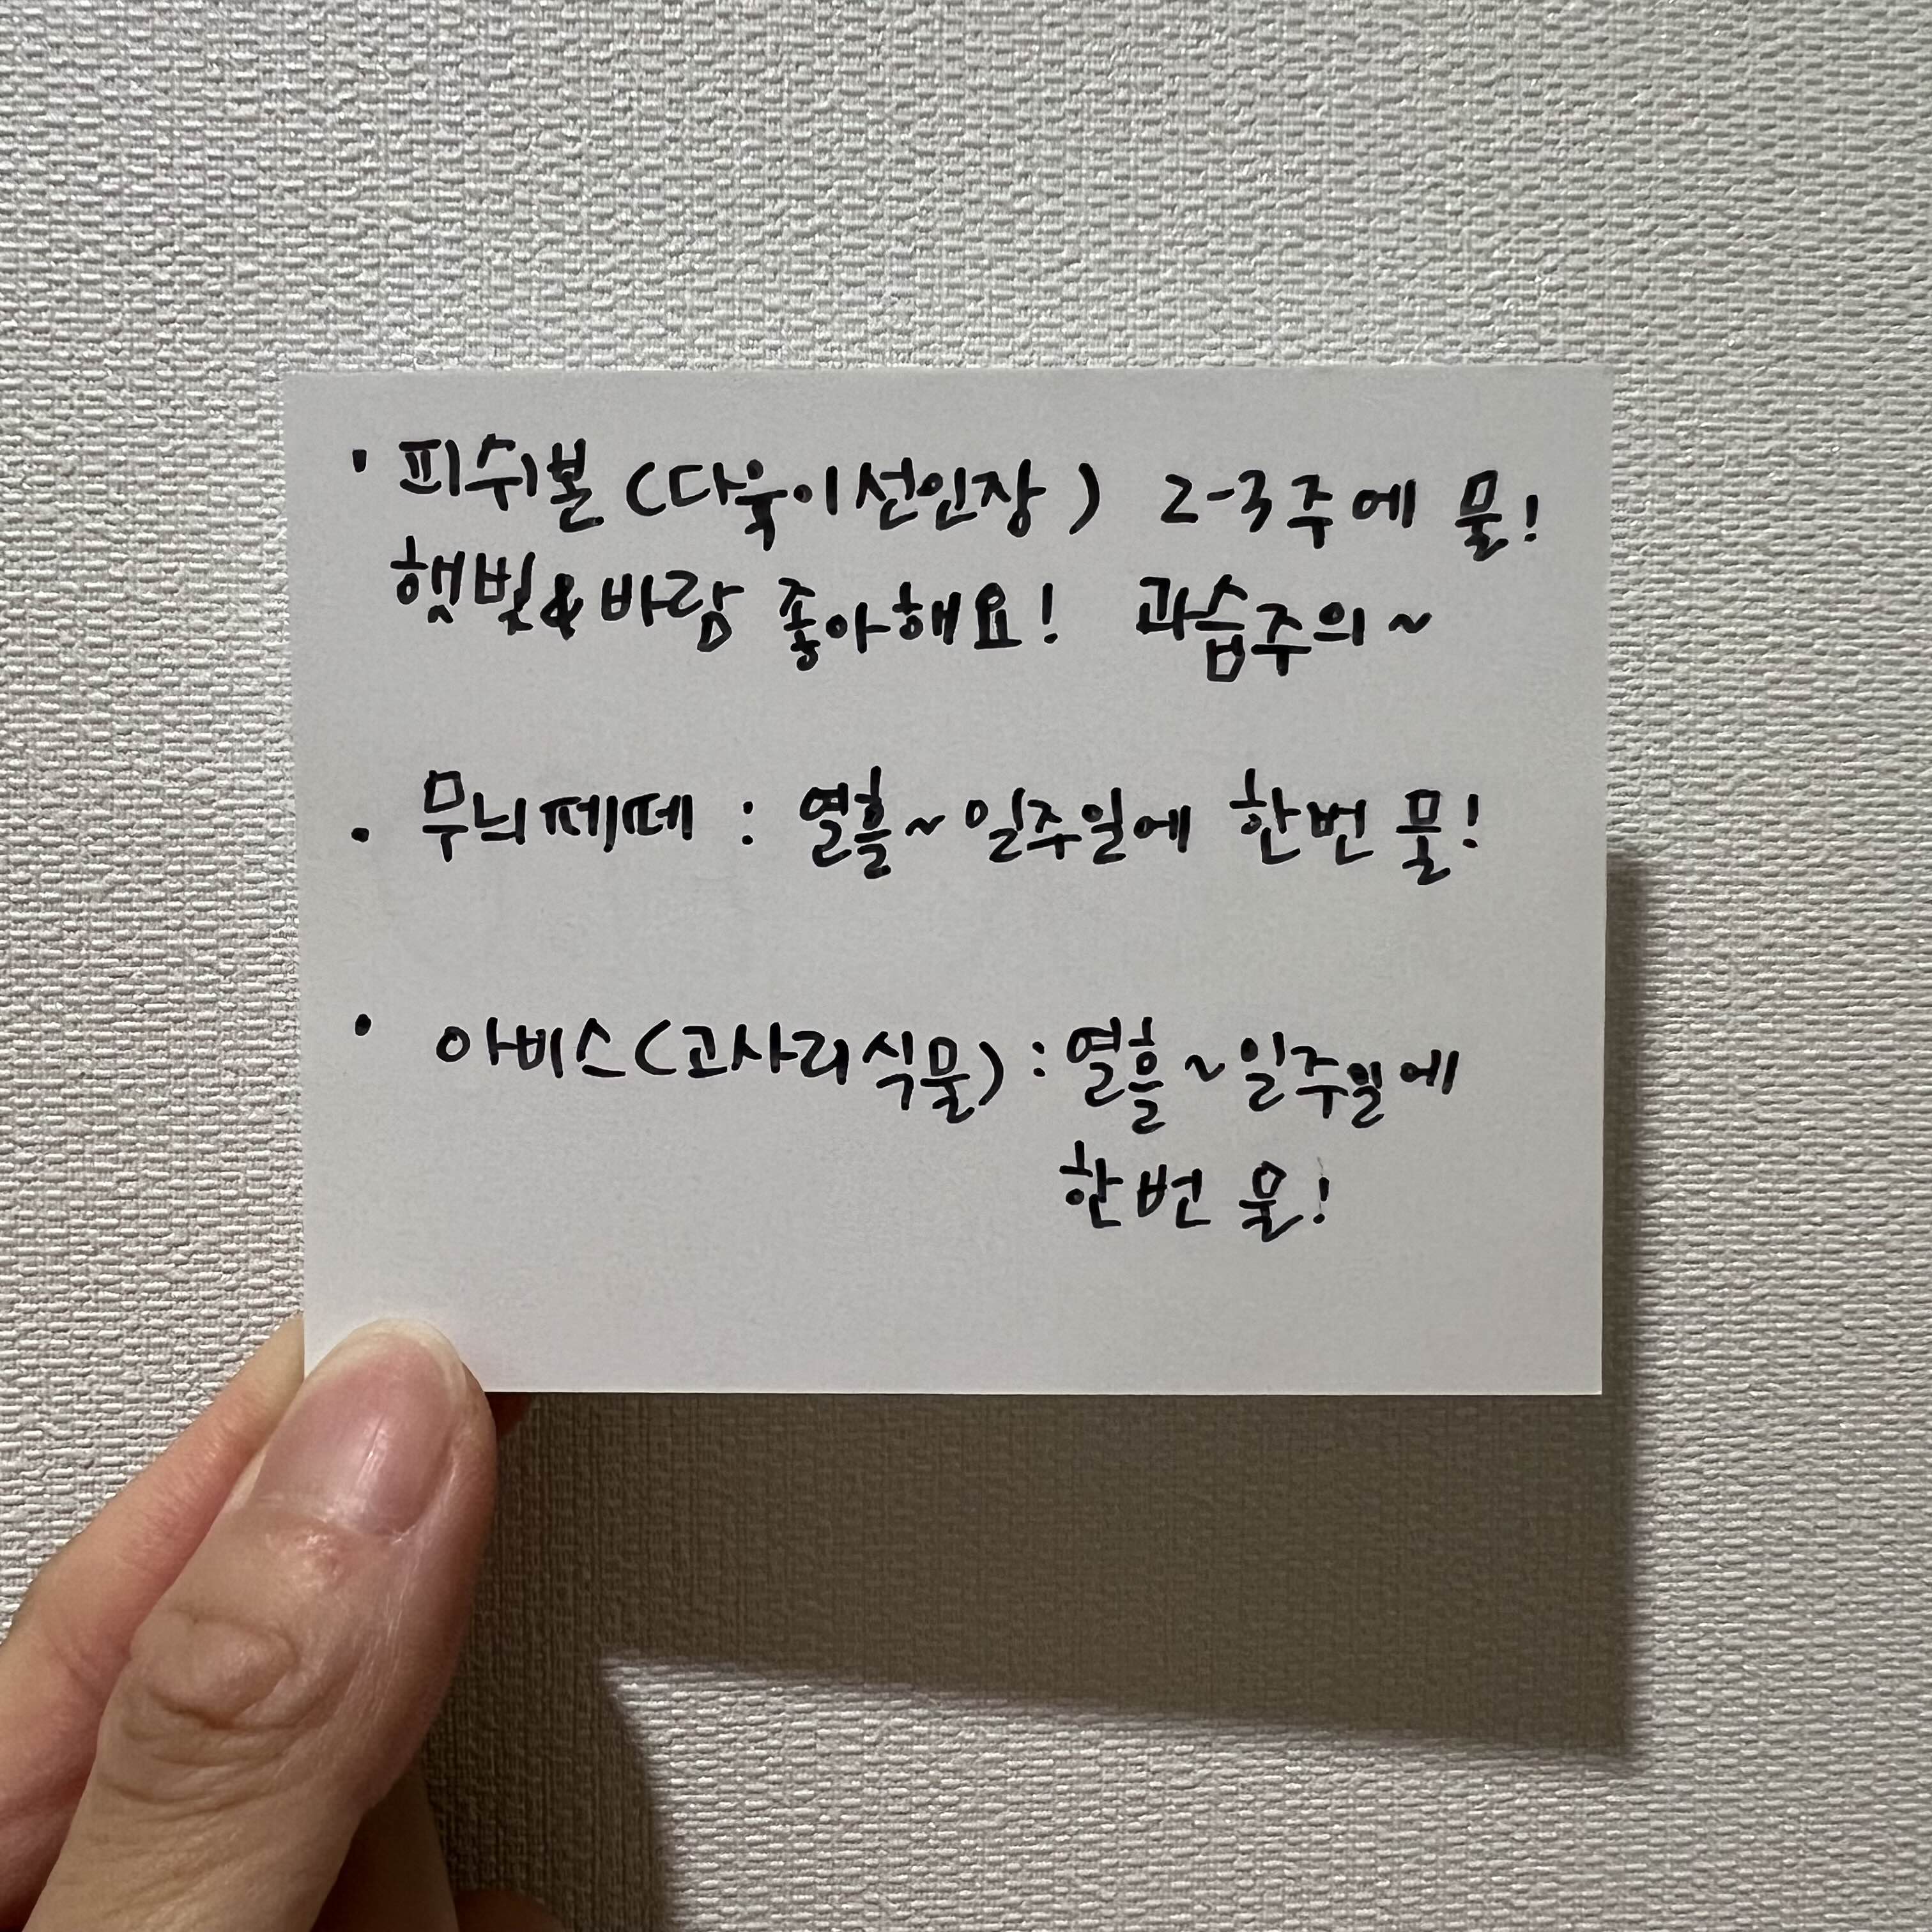 · 피쉬본 (다육이선인장) 2-3주에 물!
햇빛&바람 좋아해요! 과습주의~
· 무늬페페 : 열흘~일주일에 한번 물!
· 아비스(고사리식물) : 열흘~일주일에
한번 물!